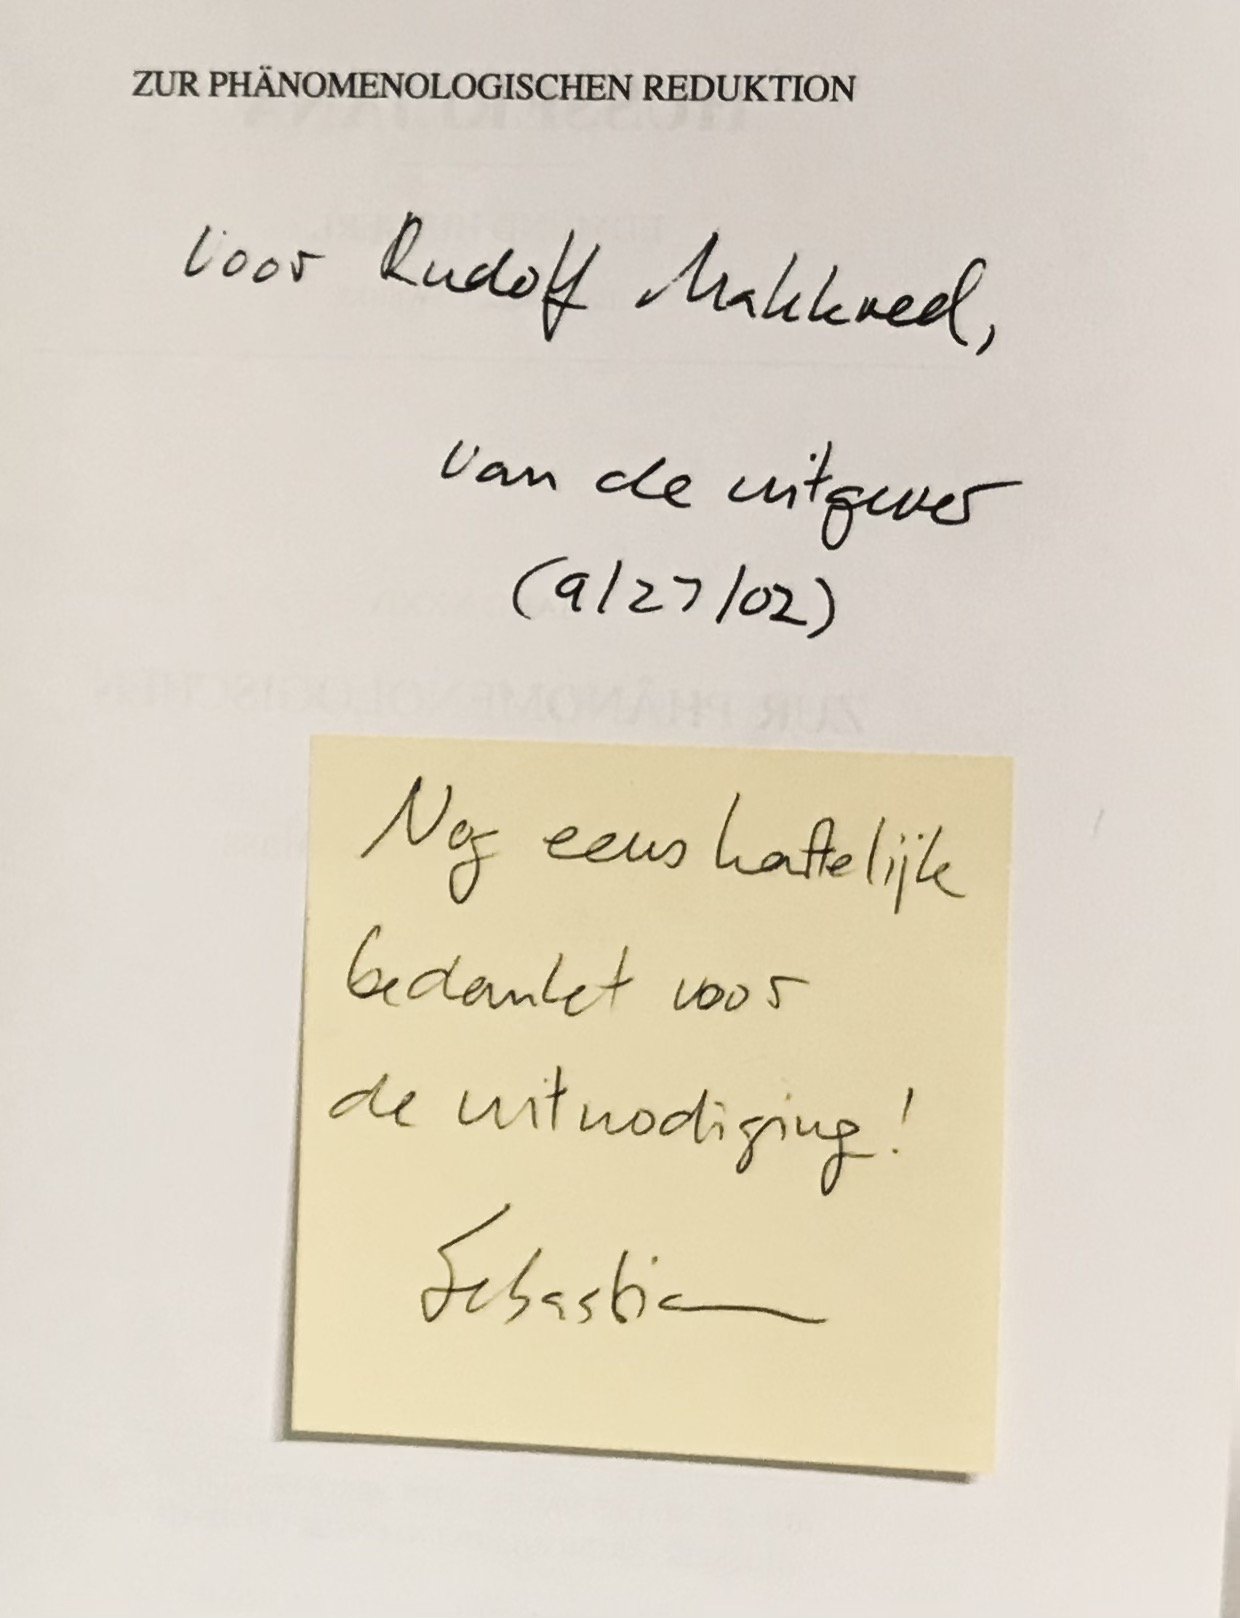 ZUR PHÄNOMENOLOGISCHEN REDUKTION
voor Rudolf Makkreel,
van de uitgever
(9/27/02)
Nog eens hartelijk
bedankt voor
de uitnodiging!
Sebastian